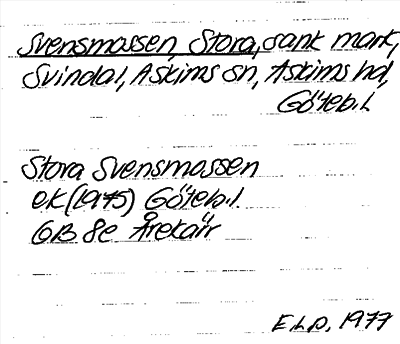 Svensmossen, Stora, sank mark,
Svindal, Askims sn, Askims hd,
Göteb.l
Stora Svensmossen
ek (1975) Göteb.l.
GB 8e Årekärr
E.L.p. 1977